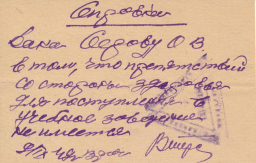 Справка
Дана Седову О В
в том, что препятствий
со стороны здоровья
для поступления в
учебное заведение
не имеется